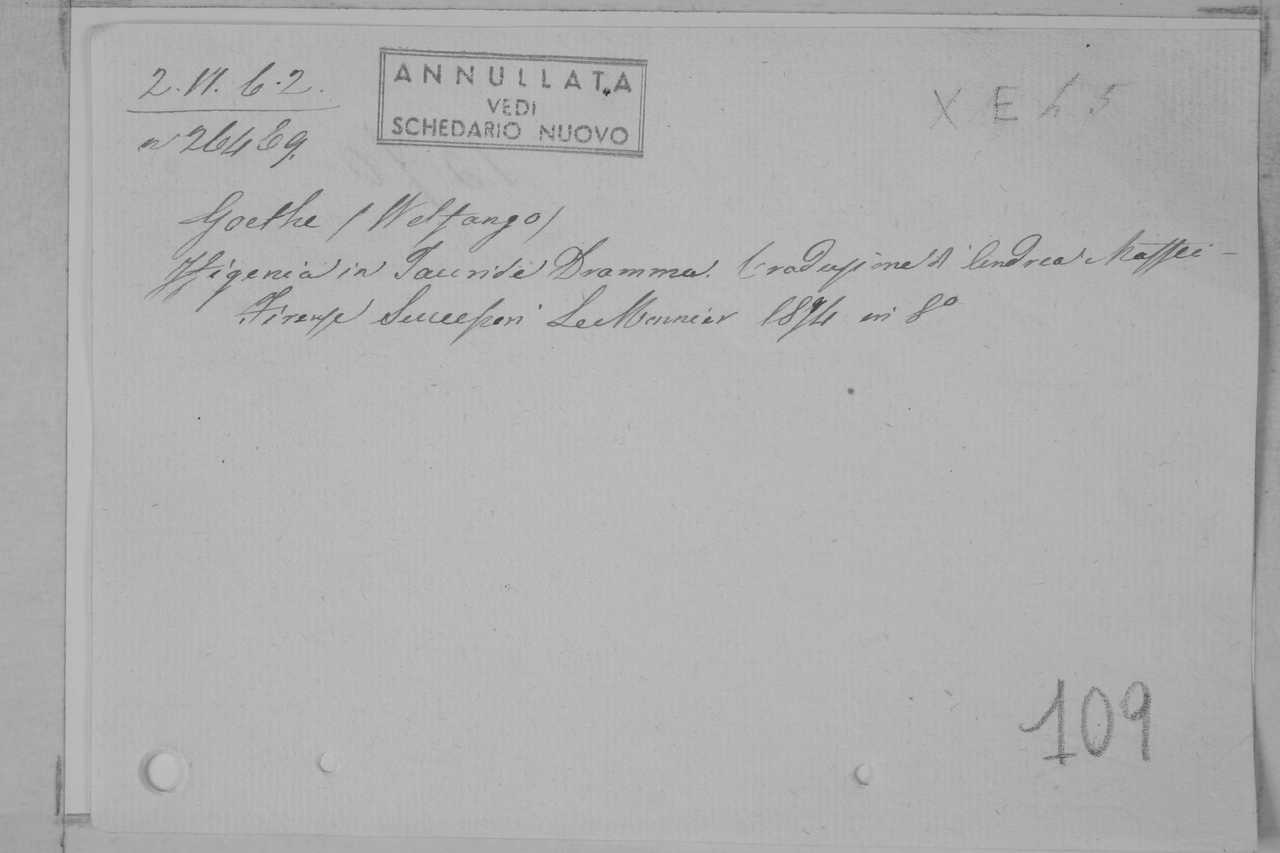 2. VI. 6. 2.
ANNULLATA
VEDI
SCHEDARIO NUOVO
X E 45
nº 26489.
Goethe (Wolfango)
Ifigenia in Tauride Dramma. Traduzione di Andrea Maffei –
Firenze Successori Le Monnier 1874 in 8º
109